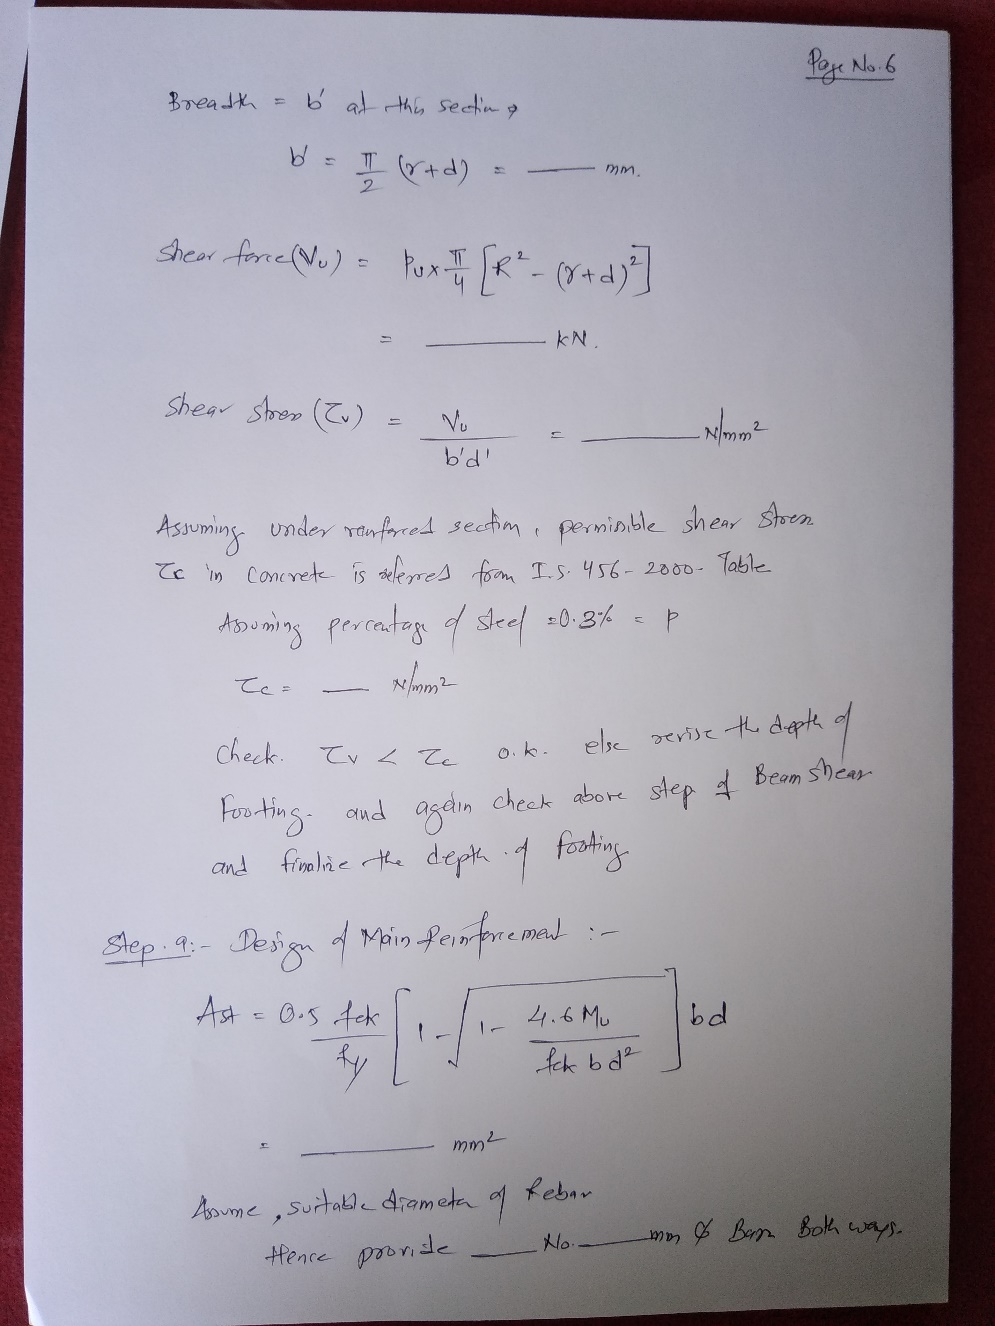 Page No. 6
Breadth = b' at this section,
b' = π/2 (r+d) = ____ mm.
Shear force (Vu) = Pu x π/4 [R² - (r+d)²]
= ____ kN.
Shear Stress (τv) = Vu / b'd' = ____ N/mm²
Assuming under reinforced section, permissible shear stress
τc in concrete is referred from I.S. 456-2000- Table
Assuming percentage of steel = 0.3% = p
τc = __ N/mm²
Check. τv < τc o.k. else revise the depth of
Footing. and again check above step of Beam shear
and finalize the depth of footing
Step. 9:- Design of Main Reinforcement :-
Ast = 0.5 fck/fy [1 - √(1 - 4.6 Mu / fck b d²)] bd
= ____ mm²
Assume, suitable diameter of Rebar
Hence provide ___ No. ___ mm φ Bars Both ways.